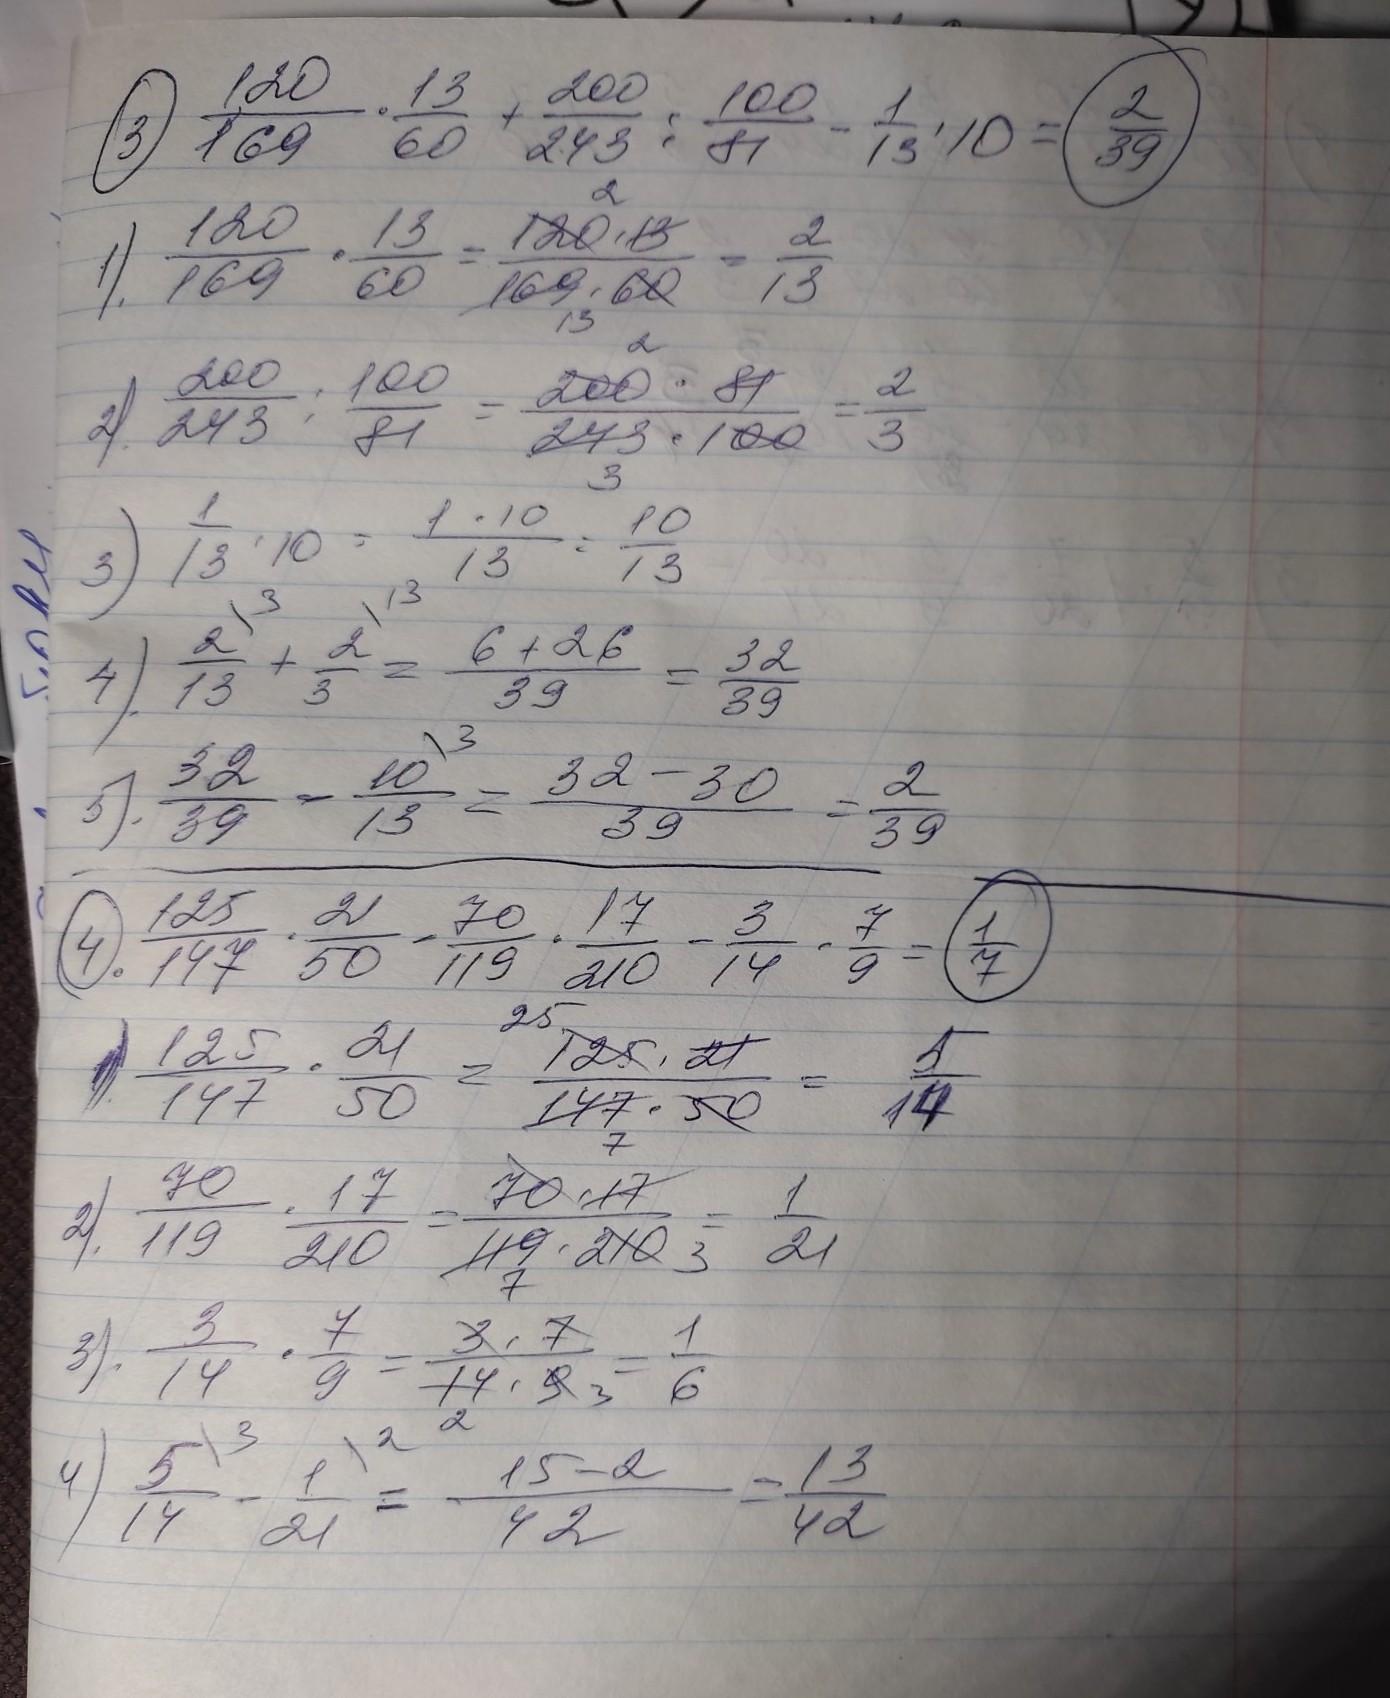 3) 120/169 · 13/60 + 200/243 : 100/81 - 1/13 · 10 = 2/39
1). 120/169 · 13/60 = 120·13/169·60 = 2/13
2). 200/243 : 100/81 = 200·81/243·100 = 2/3
3) 1/13 · 10 = 1·10/13 = 10/13
4). 2/13\3 + 2/3\13 = 6+26/39 = 32/39
5). 32/39 - 10/13\3 = 32-30/39 = 2/39
4. 125/147 · 21/50 - 70/119 · 17/210 - 3/14 · 7/9 = 1/7
1). 125/147 · 21/50 = 125·21/147·50 = 5/14
2). 70/119 · 17/210 = 70·17/119·210 = 1/21
3). 3/14 · 7/9 = 3·7/14·9 = 1/6
4) 5/14\3 - 1/21\2 = 15-2/42 = 13/42